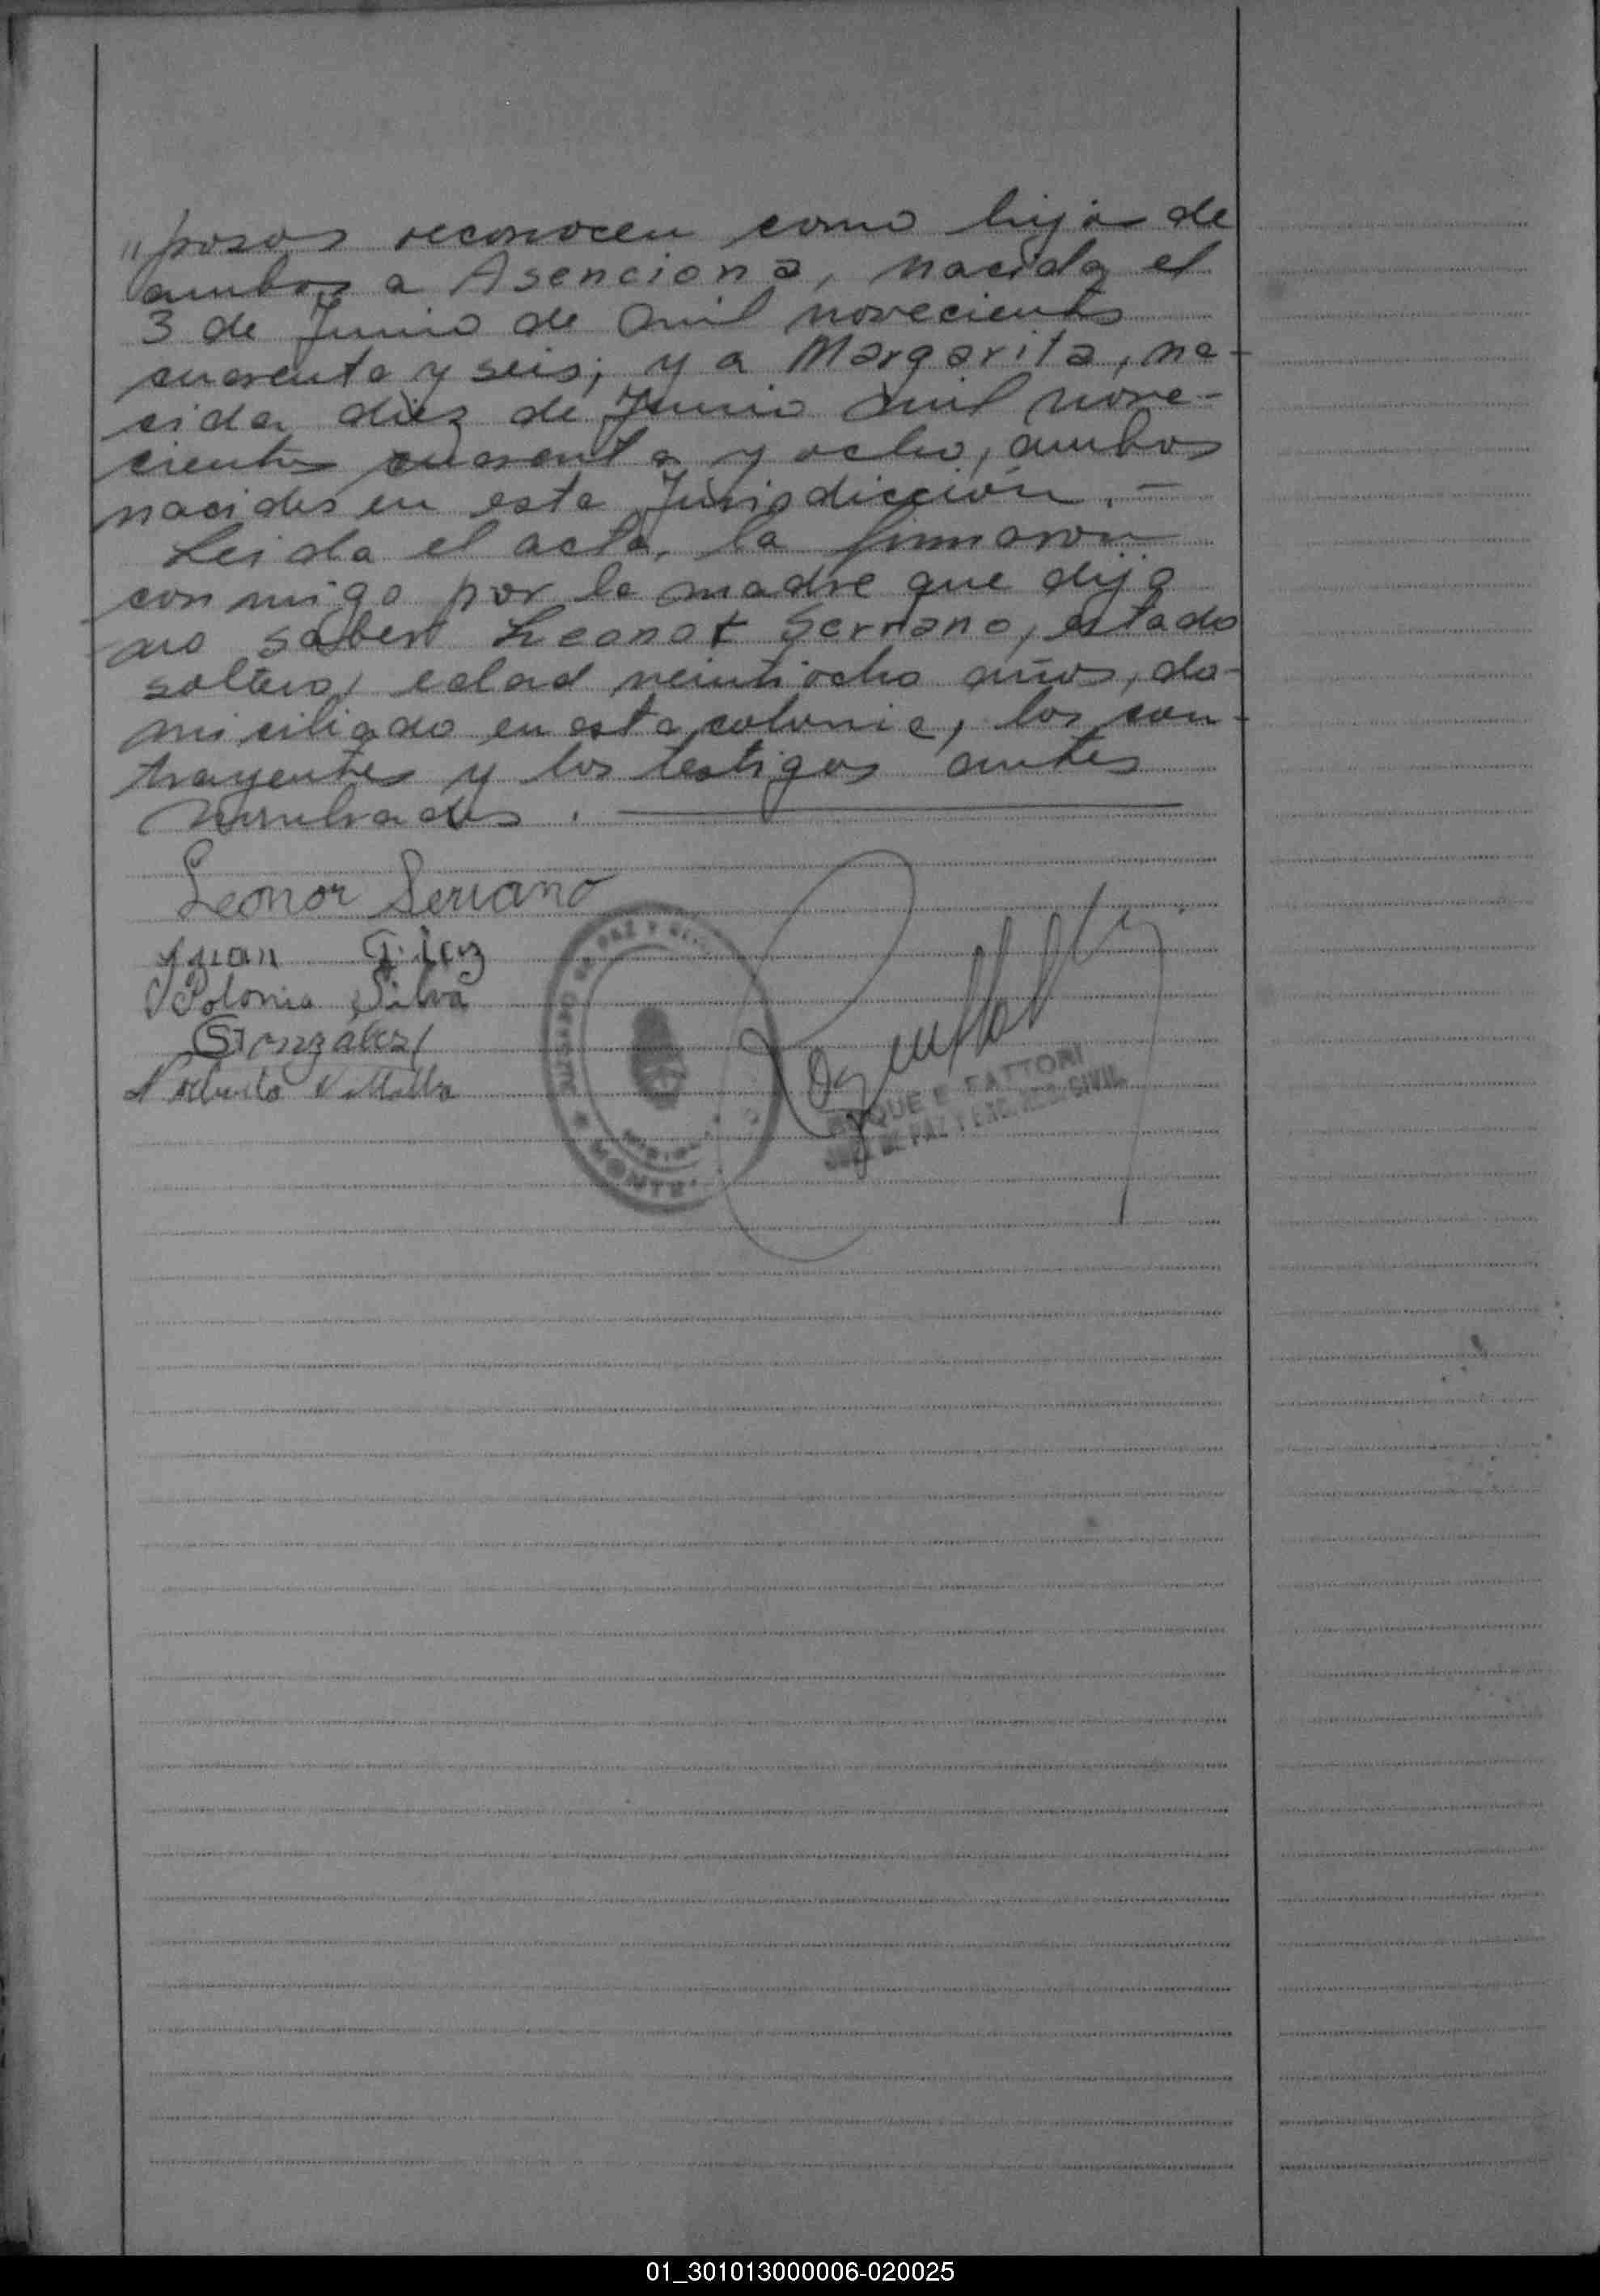 "posos reconocen como hija de
ambos a Asenciona, nacida el
3 de Junio de mil novecientos
cuarenta y seis; y a Margarita, na-
cida diez de Junio mil nove-
cientos cuarenta y ocho, ambos
nacidos en esta Jurisdicción. —
Leida el acta, la firmaron
conmigo por la madre que dijo
no saber Leonor Serrano, estado
soltero, edad veintiocho años, do-
miciliado en esta colonia, los con-
trayentes y los testigos antes
nombrados.
Leonor Serrano
Juan
Polonia Silva
Gonzalez
Norberto Villalba
JUZGADO DE PAZ Y
MONTE
ROQUE E. FATTORI
JUEZ DE PAZ Y ENC. REG. CIVIL
01_301013000006-020025